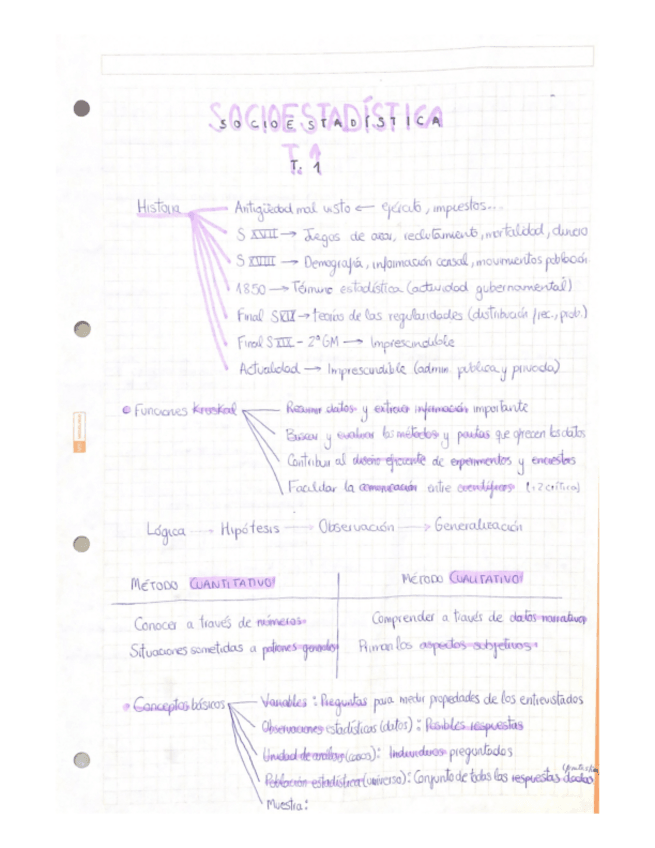 SOCIOESTADÍSTICA
T. 1
Historia
Antigüedad mal visto ← ejército, impuestos...
S XVII → Juegos de azar, reclutamiento, mortalidad, dinero
S XVIII → Demografía, información censal, movimientos población
1850 → Término estadística (actividad gubernamental)
Final S XIX → teorías de las regularidades (distribución frec., prob.)
Final S XIX - 2ª GM → Imprescindible
Actualidad → Imprescindible (admin. pública y privada)
Funciones Kruskal
Resumir datos y extraer información importante
Buscar y evaluar los métodos y pautas que ofrecen los datos
Contribuir al diseño eficiente de experimentos y encuestas
Facilitar la comunicación entre científicos (+2 crítica)
Lógica → Hipótesis → Observación → Generalización
MÉTODO CUANTITATIVO
MÉTODO CUALITATIVO
Conocer a través de números
Comprender a través de datos narrativos
Situaciones sometidas a patrones generales
Priman los aspectos subjetivos
Conceptos básicos
Variables: Preguntas para medir propiedades de los entrevistados
Observaciones estadísticas (datos): Posibles respuestas
Unidad de análisis (casos): Individuos preguntados
Población estadística (universo): Conjunto de todas las respuestas dadas
Muestra: